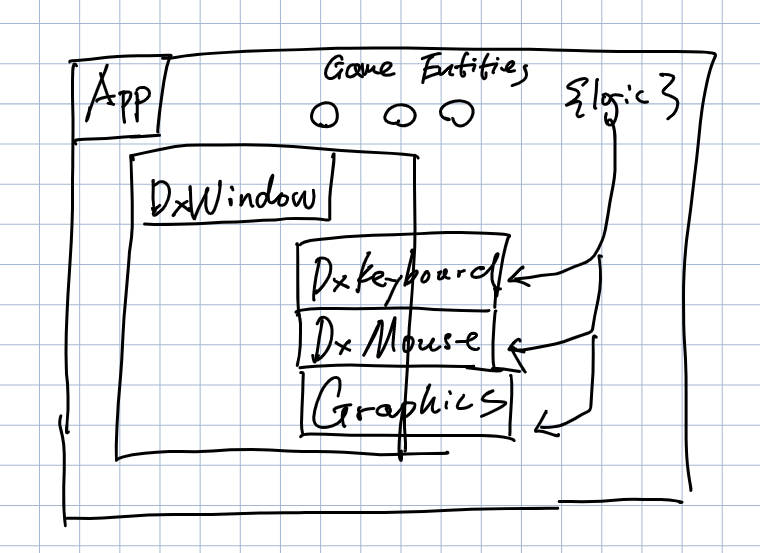 Game Entities
App
{logic}
DxWindow
Dxkeyboard
Dx Mouse
Graphics